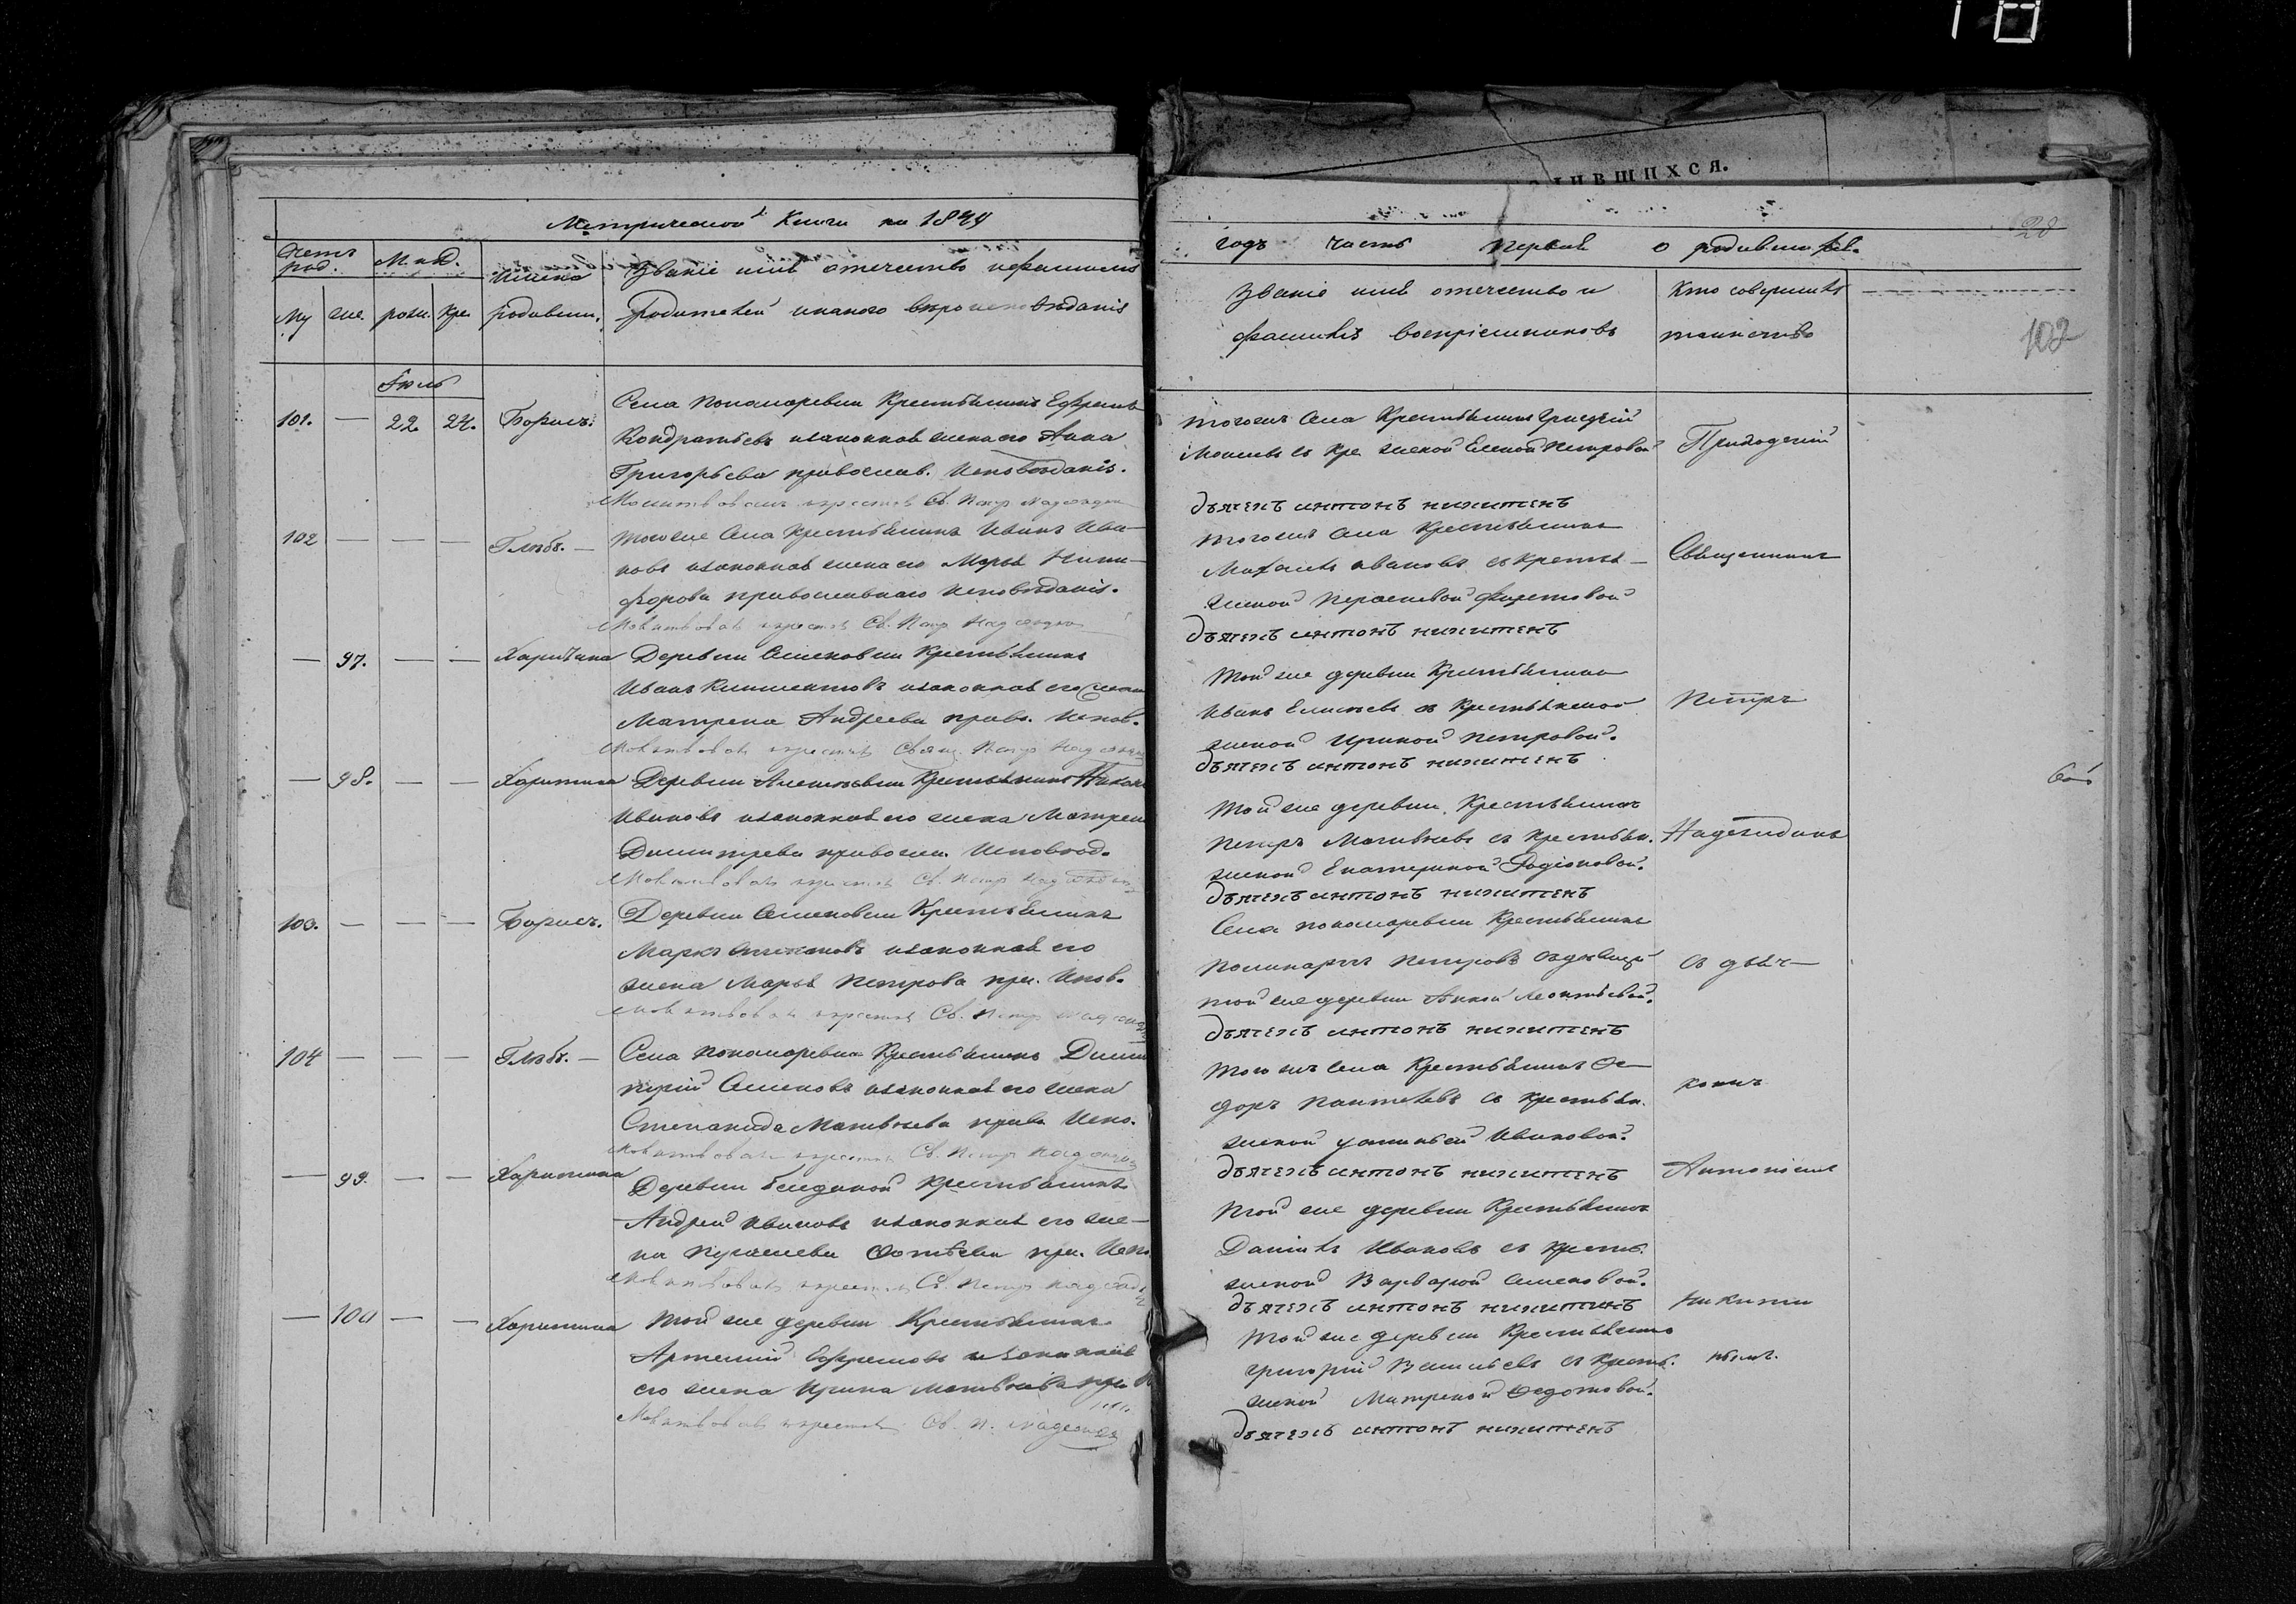 Метрической Книги на 1844
Счетъ род.
М. и д.
Имена родивши.
Званіе имя отечество и фамилия
Родителей и какого вѣроисповѣданія
Му
же.
рож.
кре.
Іюль
101. — 22. 24. Борисъ.
Села Пономаревки Крестьянинъ Ефремъ
Кондратьевъ изаконная жена его Анна
Григорьева православ. Исповѣданія.
Молитвовалъ и крестилъ Св. Петр Надеждин
102 — — — Глѣбъ. —
Тогоже Села Крестьянинъ Иванъ Ива-
новъ изаконная жена его Марья Ники-
форова православнаго Исповѣданія.
Молитвовалъ и крестилъ Св. Петр Надеждин
— 97. — — Харитина
Деревни Семеновки Крестьянинъ
Иванъ Климентовъ изаконная его жена
Матрена Андреева прав. Испов.
Молитвовалъ и крестилъ Свящ. Петр Надеждин
— 98. — — Харитина
Деревни Крестьянинъ
Ивановъ изаконная его жена Матрена
Димитрева правосл. Исповѣд.
Молитвовалъ и крестилъ Св. Петр Надеждин
103. — — — Борисъ.
Деревни Семеновки Крестьянинъ
Маркъ Степановъ изаконная его
жена Марья Петрова пра. Испов.
Молитвовалъ и крестилъ Св. Петр Надеждин
104 — — — Глѣбъ. —
Села Пономаревки Крестьянинъ Дими
трій Семеновъ изаконная его жена
Степанида Матвѣева прав. Испо.
Молитвовалъ и крестилъ Св. Петр Надеждин
— 99. — — Харитина
Деревни Крестьянинъ
Андрей Ивановъ изаконная его же-
на Фотѣева пра. Испо.
Молитвовалъ и крестилъ Св. Петр Надежд
— 100 — — Харитина
Той же деревни Крестьянинъ
Артемий Ефремовъ изаконная
его жена Ирина Матвѣева пра
Молитвовалъ и крестилъ Св. П. Надеждин
ДИВШИХСЯ.
28
годъ часть первая о родившихся.
Званіе имя отечество и
фамилія воспріемниковъ
Кто совершалъ
таинство
102
Тогожъ Села Крестьянинъ
съ Кре женой Еленой Петровой
дьячекъ антонъ никитенъ
Тогожъ Села Крестьянинъ
Михаилъ Ивановъ съ Кресть
женой
дьячекъ антонъ никитенъ
Той же деревни Крестьянинъ
Иванъ Елисѣевъ съ Крестьянской
женой Ириной Петровой.
дьячекъ антонъ никитенъ
Той же деревни Крестьянинъ
Петръ Матвѣевъ съ Крестьян.
женой Екатериной Родіоновой.
дьячекъ антонъ никитенъ
Села Пономаревки Крестьянинъ
Поликарпъ Петровъ съ дѣвицей
той же деревни Анной Леонтьевой.
дьячекъ антонъ никитенъ
Того жъ Села Крестьянинъ Фе-
доръ Пантелѣевъ съ Крестьян.
женой Ивановой.
дьячекъ антонъ никитенъ
Той же деревни Крестьянинъ
Данилъ Ивановъ съ Кресть.
женой Варварой Семеновой.
дьячекъ антонъ никитинъ
Той же деревни Крестьянинъ
Григорій Васильевъ съ Кресть.
женой Матреной Федотовой.
дьячекъ антонъ никитенъ
Приходскій
Священникъ
Петръ
Надеждинъ
съ дьяч-
комъ
Антоніемъ
Никити
нымъ.